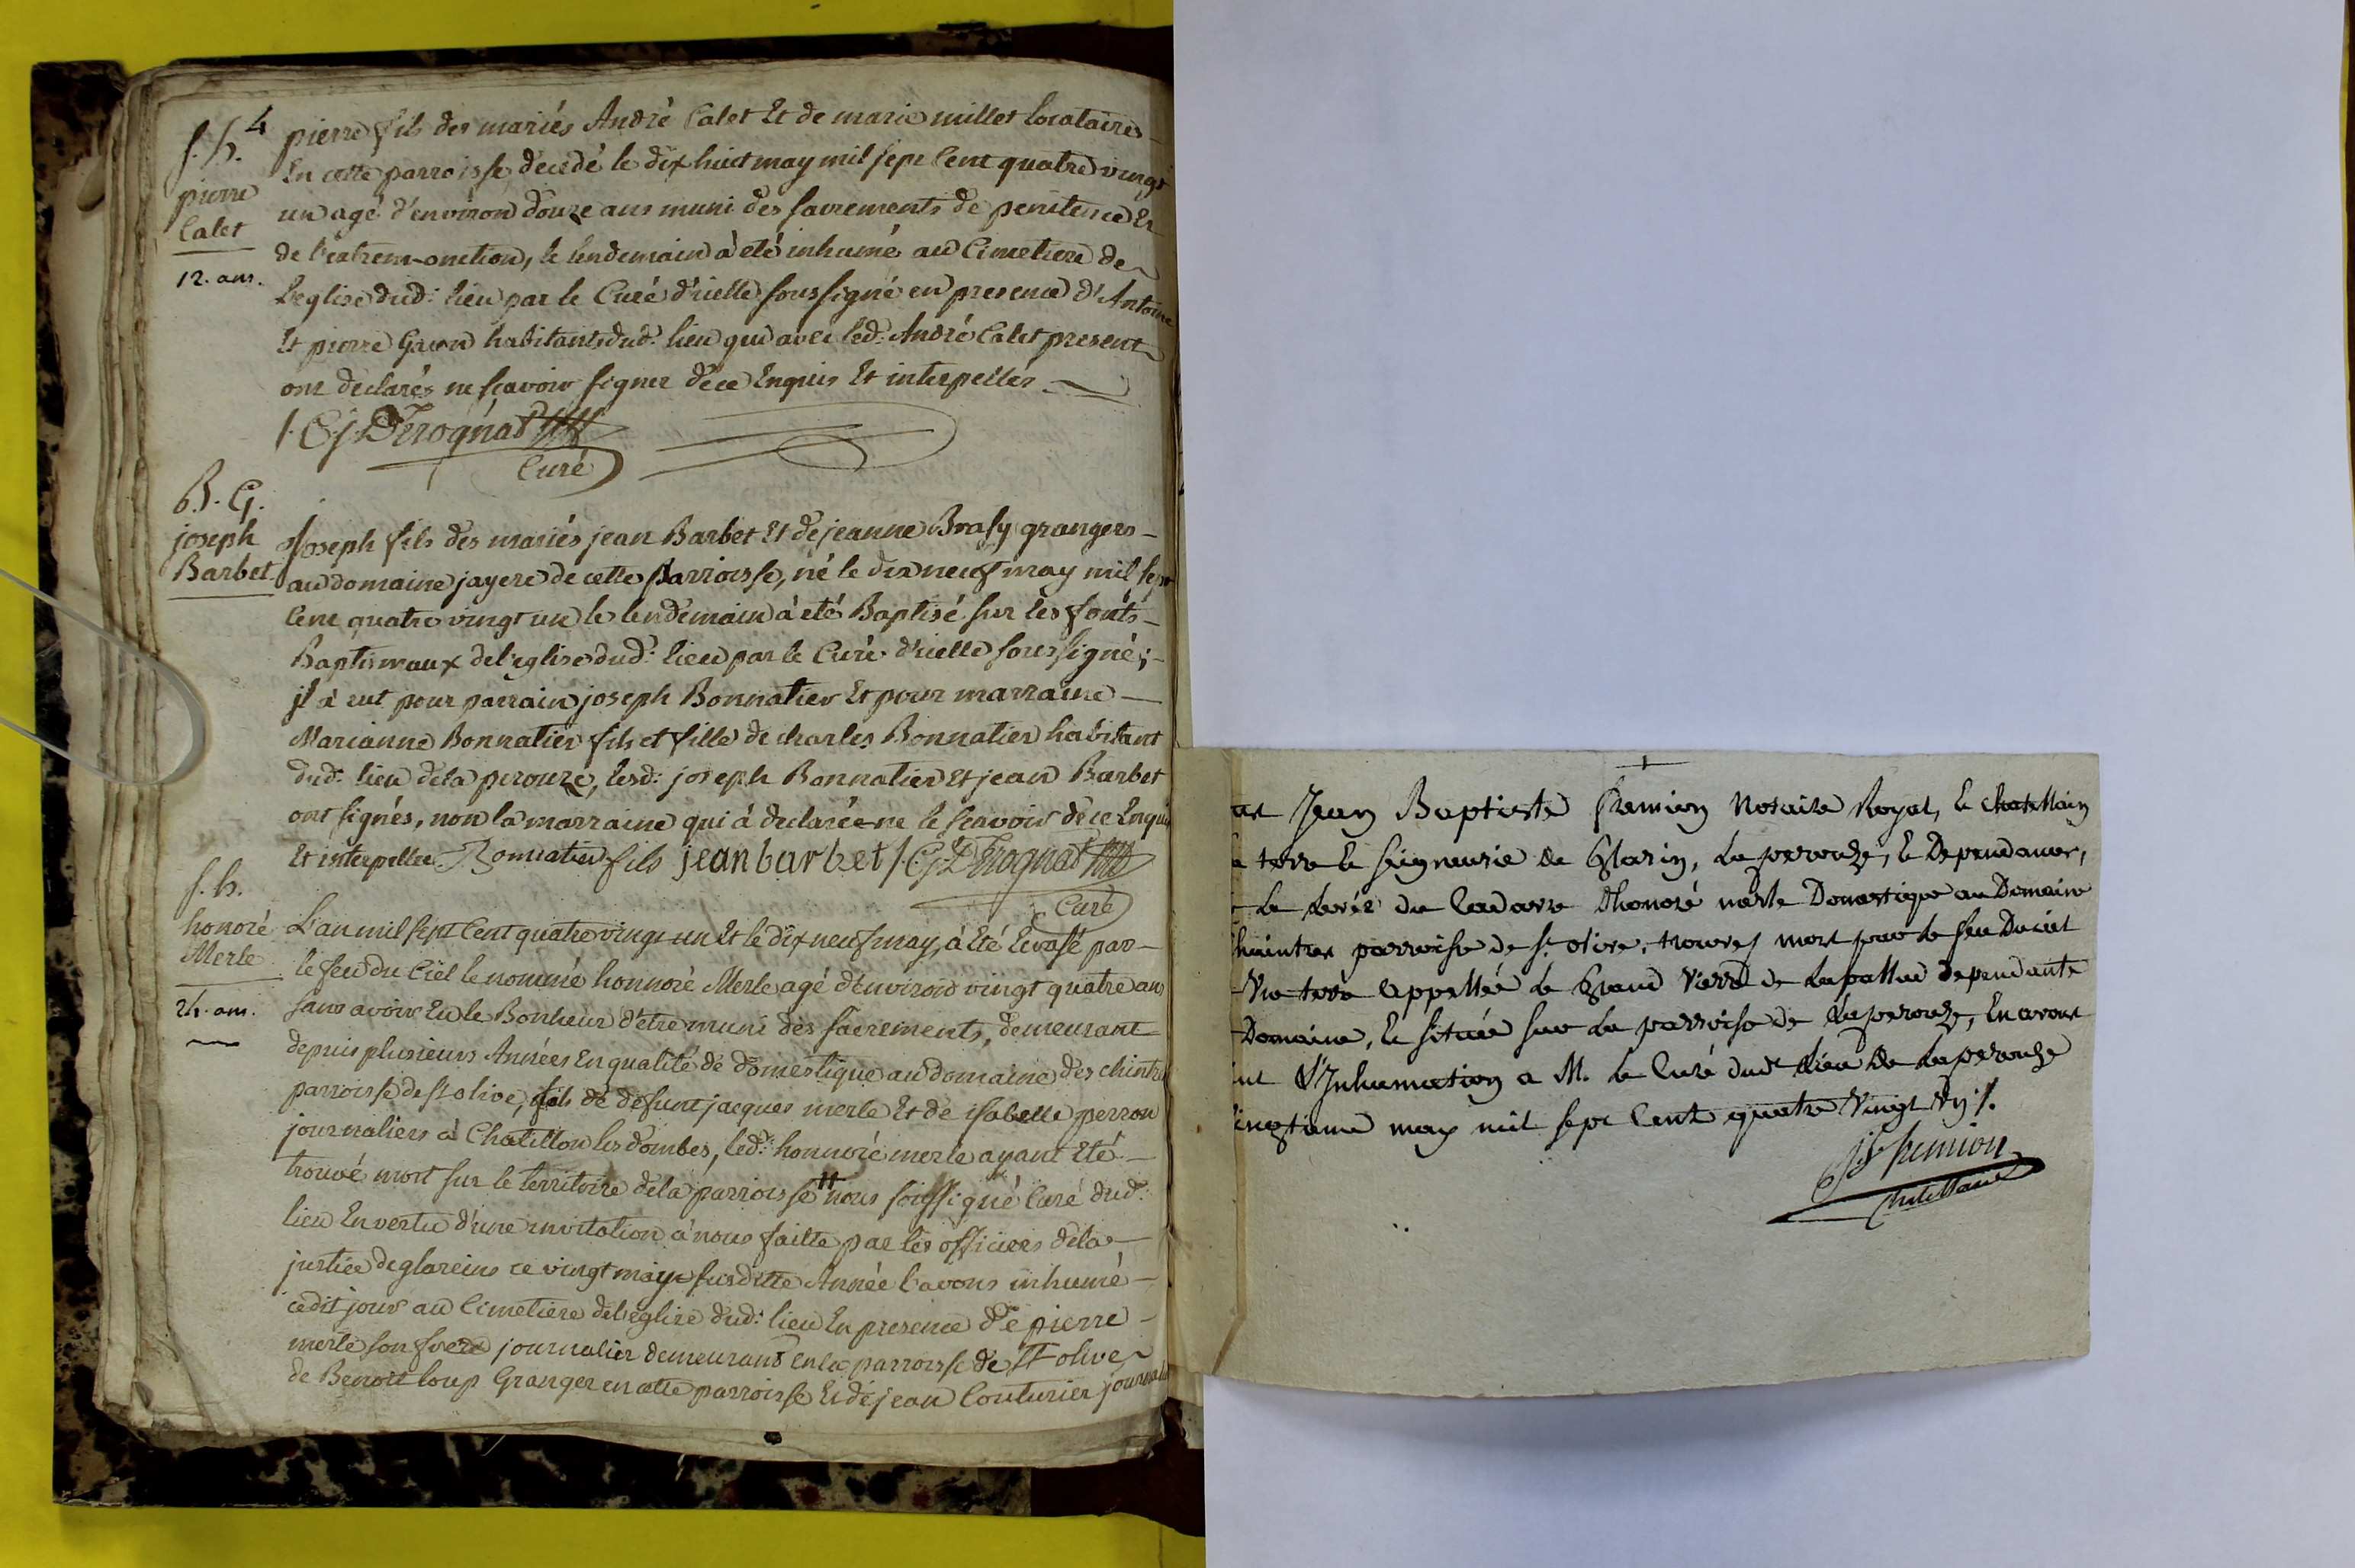 4
S.h.
pierre
Calet
12. ans.
pierre fils des mariés André Calet Et de marie millet locataires
En cette parroisse, décédé le dix huict may mil sept Cent quatre vingt
un agé d'environ douze ans muni des sacrements de penitence Et
de l'extrem-onction, le lendemain à eté inhumé au Cimetiere de
l'eglise dud: lieu par le Curé d'icelle soussigné en presence d'Antoine
Et pierre habitants dud: lieu qui avec led: André Calet present
ont declarés ne sçavoir signer de ce Enquis Et interpellés
Curé
B. G.
joseph
Barbet
Joseph fils des mariés jean Barbet Et de jeanne Brasy grangers
au domaine jayere de cette parroisse, né le dix neuf may mil sept
Cent quatre vingt un le lendemain à eté Baptisé sur les fonts
Baptismaux de l'eglise dud: lieu par le Curé d'icelle soussigné;
il à eut pour parrain joseph Bonnatier Et pour marraine
Marianne Bonnatier fils et fille de charles Bonnatier habitant
dud: lieu de la perouze, lesd: joseph Bonnatier Et jean Barbet
ont signés, non la marraine qui à declarée ne le sçavoir de ce Enquis
Et interpellée. Bonnatier fils jean barbet
Curé
S. h.
honoré
Merle
24. ans.
L'an mil sept Cent quatre vingt un Et le dix neuf may, à Eté Ecrasé par
le feu du Ciel le nommé honnoré Merle agé d'Environ vingt quatre ans
sans avoir Eu le Bonheur d'etre muni des sacrements, demeurant
depuis plusieurs Années En qualité de domestique au domaine des chintres
parroisse de St olive, fils de defunt jacques merle Et de isabelle perron
journaliers à Chatillon les dombes, led: honnoré merle ayant Eté
trouvé mort sur le territoire de la parroisse nous soussigné Curé dud:
lieu En vertu d'une invitation à nous faitte par les officiers de la
justice de glareins ce vingt may susditte Année l'avons inhumé
cedit jour au Cimetiere de l'eglise dud: lieu En presence de pierre
merle son frere journalier demeurant en la parroisse de St olive
de Benoit loup Granger en cette parroisse Et de jean Couturier journalier
Jean Baptiste Notaire Royal, & chatellain
terre & seigneurie de Glarin, La perouze, & Dependances,
La levée du Cadavre D'honoré merle Domestique au Domaine
parroisse de St. olive, trouvé mort par le feu Du ciel
terre appellée le Grand Dependante
Domaine, & située sur La parroise de Laperouze, En avons
L'Inhumation a M. le Curé dud. Lieu De Laperouze
may mil sept Cent quatre Vingt Un ./.
chatellain